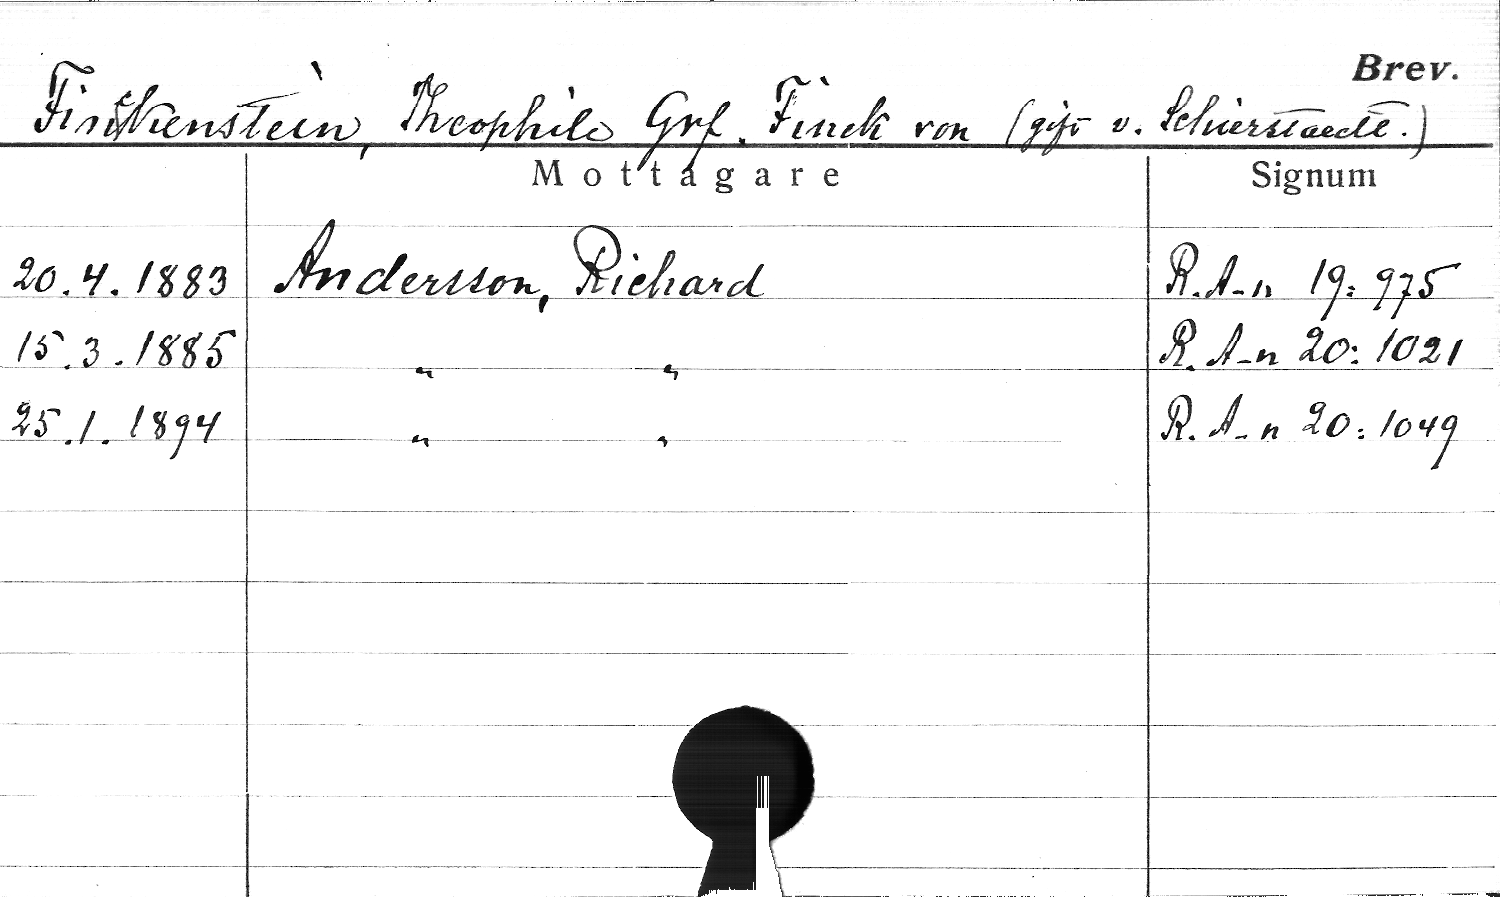 Brev.
Finckenstein, Theophile Grf. Finck von (gift v. Schierstaedt.)
Mottagare Signum
20.4.1883 Andersson, Richard R. A-n 19:975
15.3.1885 " " R. A-n 20:1021
25.1.1894 " " R. A-n 20:1049